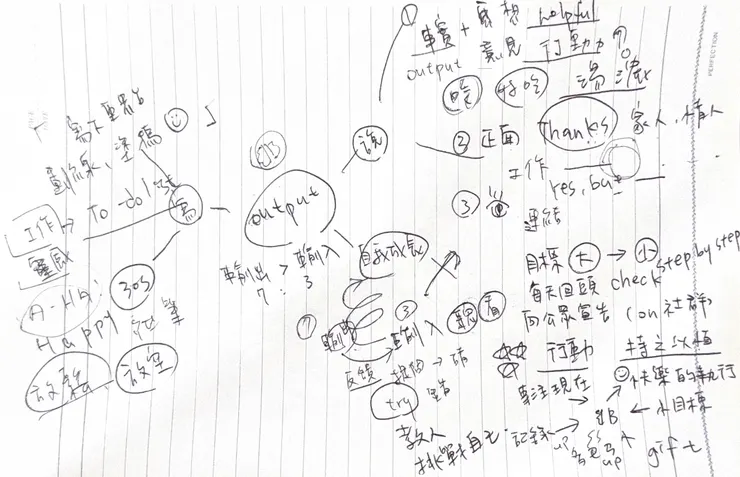 ① 事實 + 感想 helpful
output 意見 行動力
吃 好吃
② 正面 Thanks 家人、情人
工作
yes, but
③
連結
說
「寫下單字
劃線、塗鴉 」
工作 → To do list
靈感
寫
A-HA! 30s
Happy
放鬆 放空
output
輸出 > 輸入
7 : 3
自我成長
⑦ 輸出 ③ 輸入 聽 看
反饋
try
教人
挑戰自己
目標 大 → 小 step by step
每天回頭 check
向公眾宣告 (on 社群)
行動 持之以恆
專注現在 快樂的執行
記錄 ← 小目標
up up gift
PERFECTION